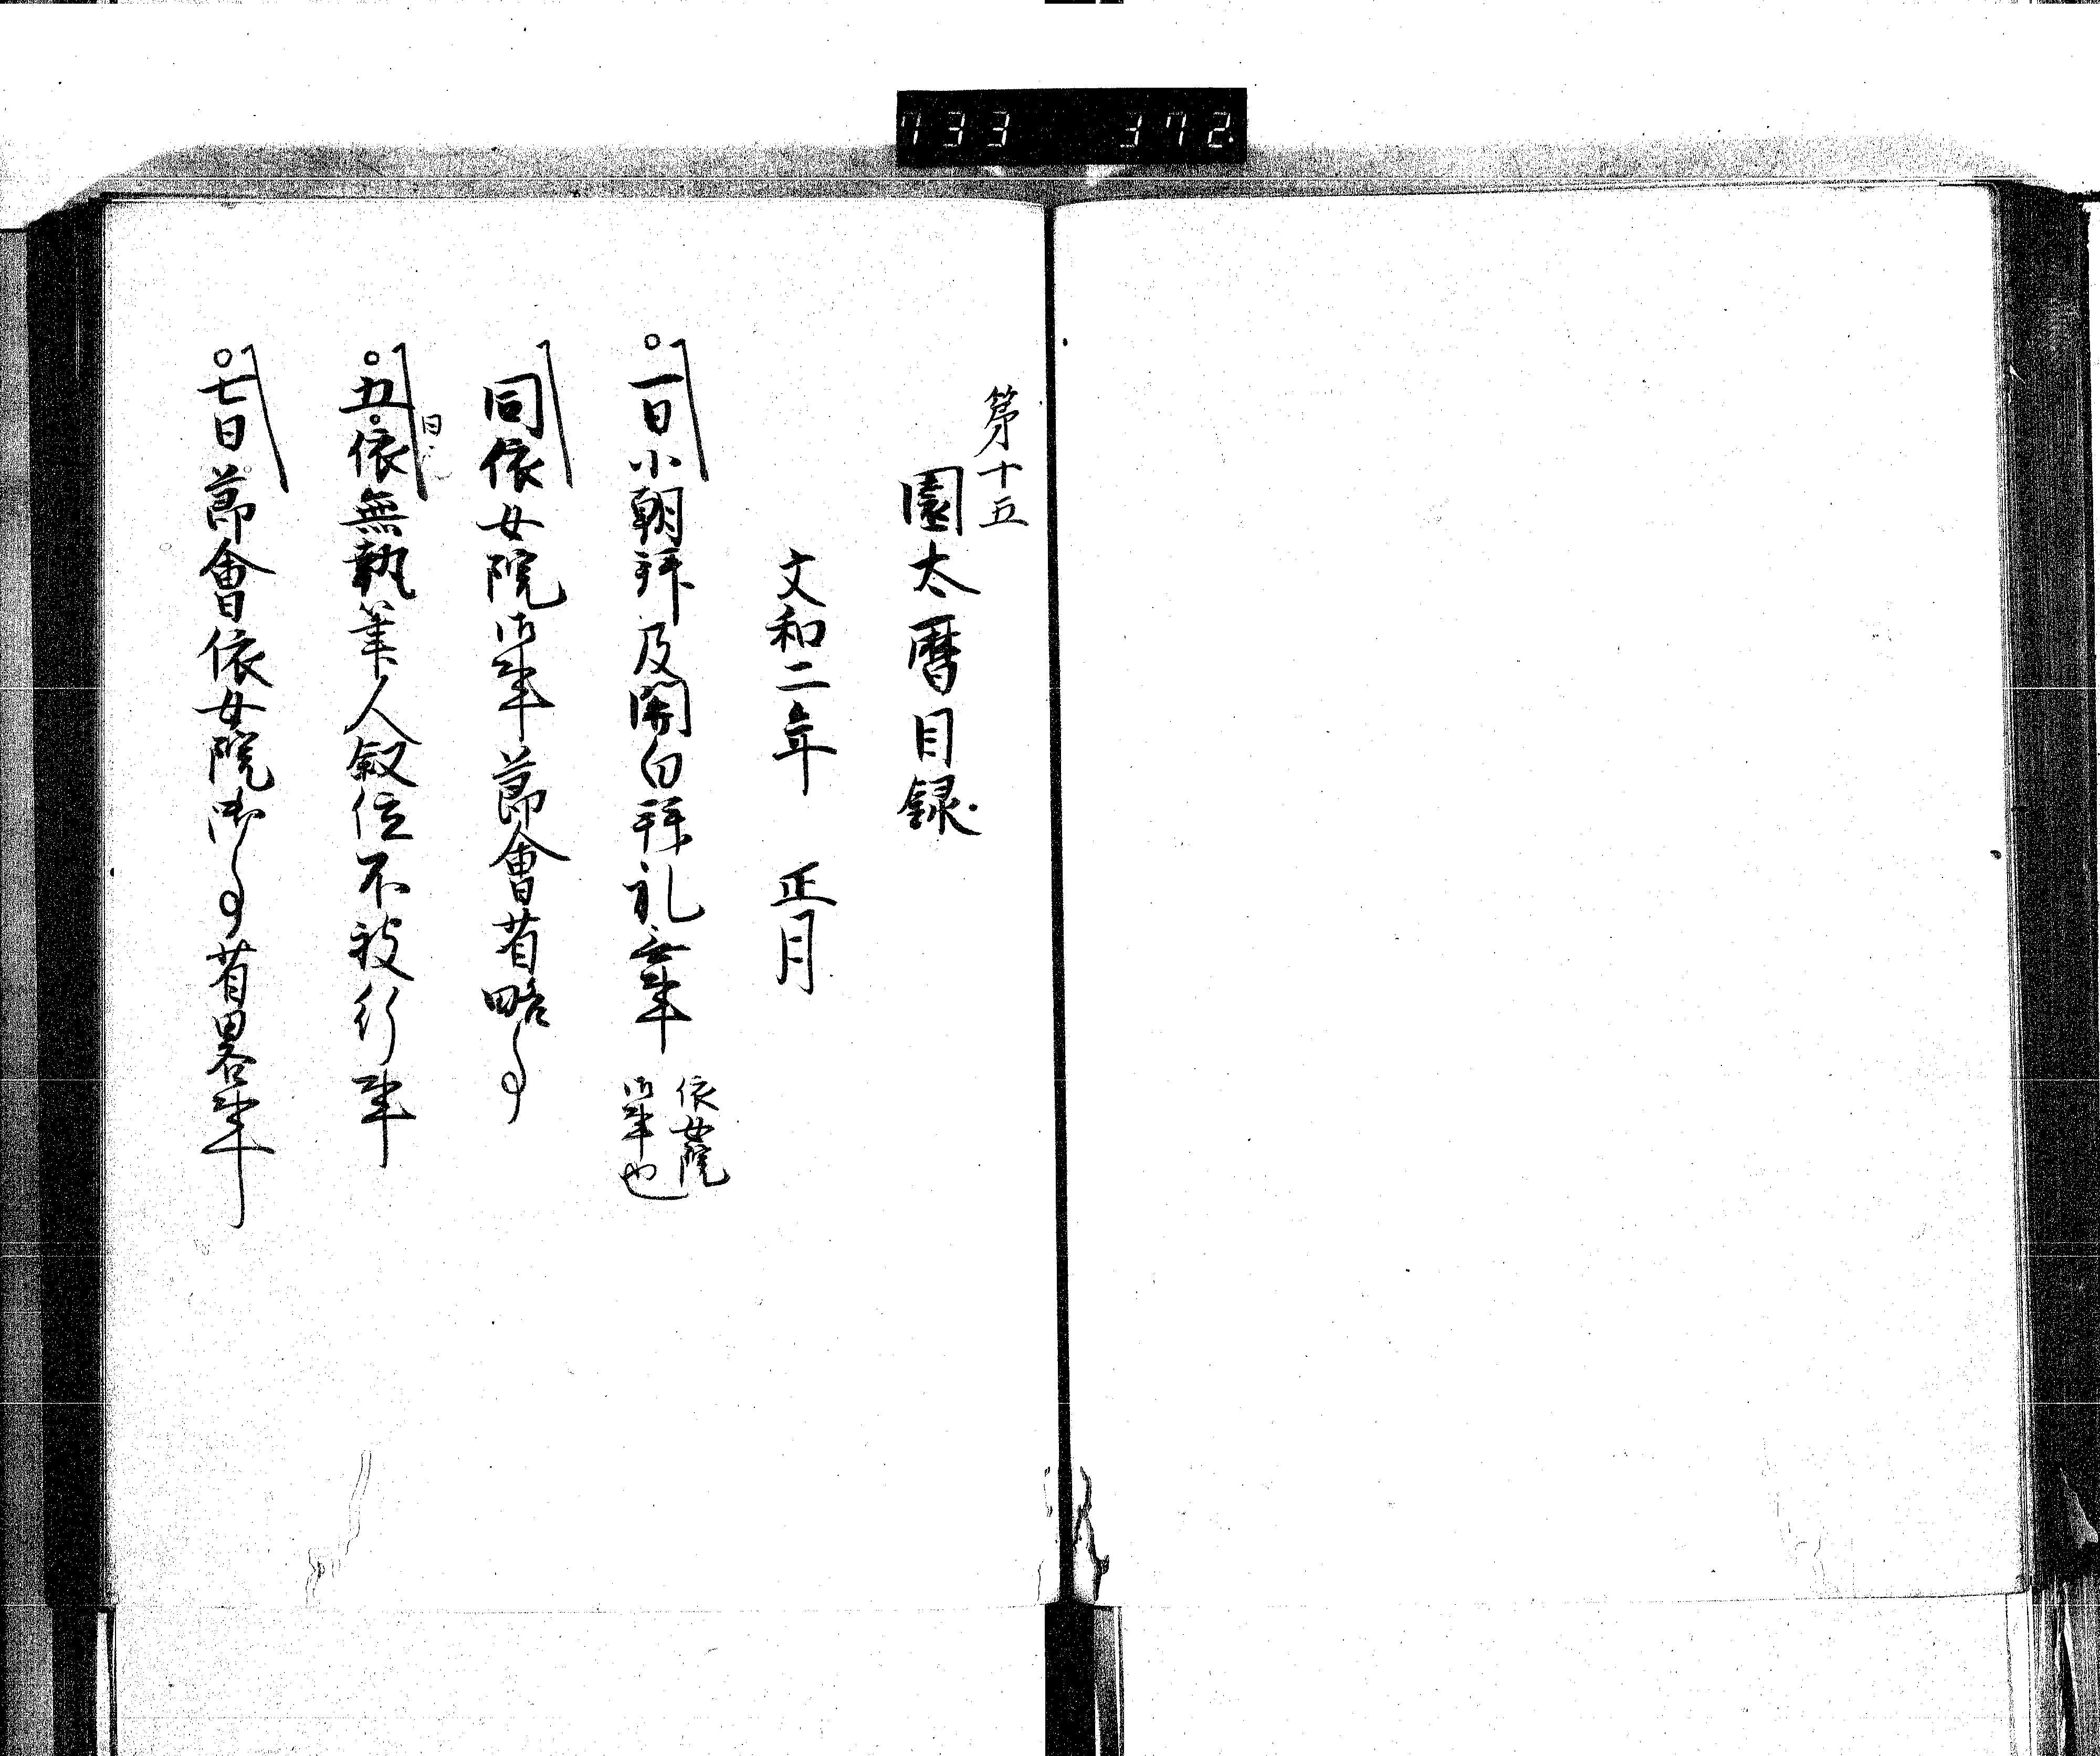 733 372
第十五
園太暦目録
文和二年 正月
一日小朝拝及関白拝礼無事 依女院御事也
同依女院御事節會省略事
五日依無執筆人叙位不被行事
七日節會依女院御事省畧事